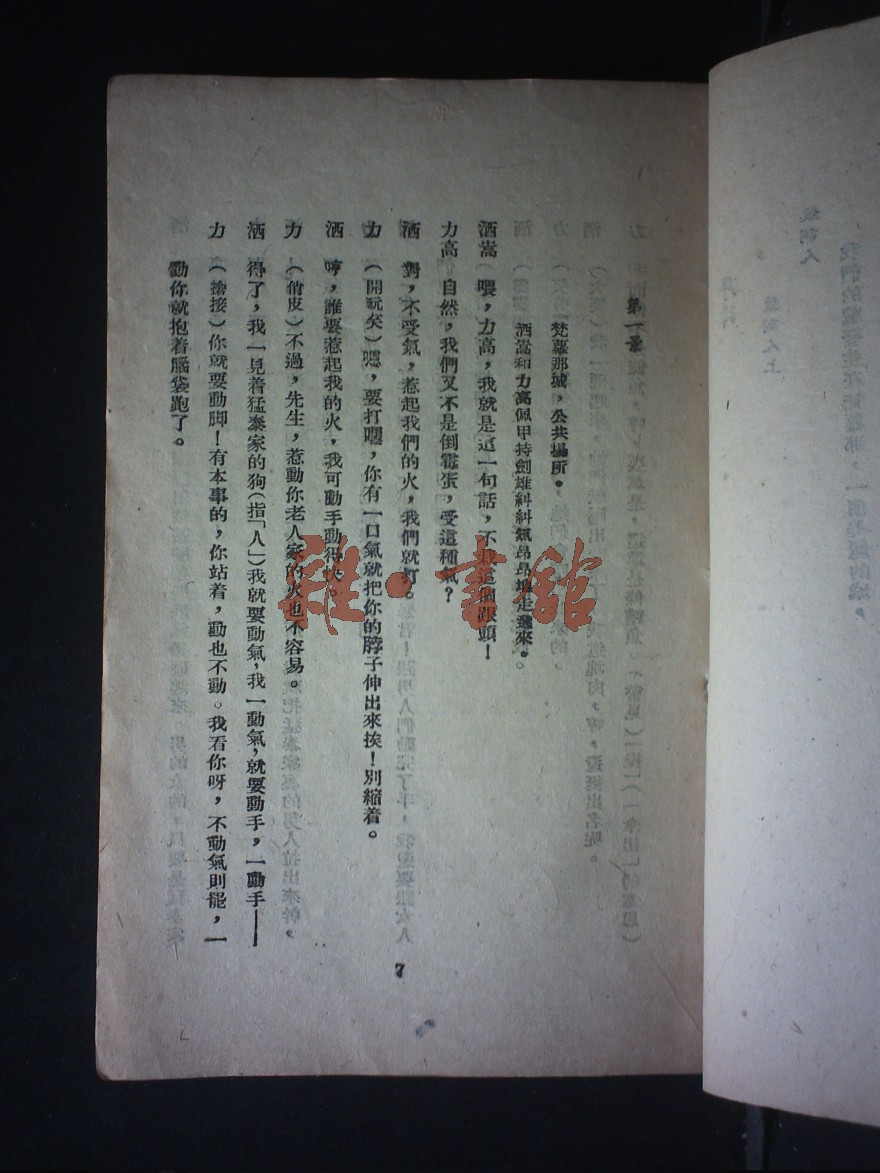 第一景
梵蘿那城，公共場所。
洒嵩和力高佩甲持劍雄糾糾氣昂昂地走進來。
洒嵩　喂，力高，我就是這一句話，不栽這個跟頭！
力高　自然，我們又不是倒霉蛋，受這種氣？
洒　對，不受氣，惹起我們的火，我們就打。
力　（開玩笑）嗯，要打囉，你有一口氣就把你的脖子伸出來挨！別縮着。
洒　哼，誰要惹起我的火，我可動手動得快。
力　（俏皮）不過，先生，惹動你老人家的火也不容易。
洒　得了，我一見着猛泰家的狗（指「人」）我就要動氣，我一動氣，就要動手，一動手——
力　（搶接）你就要動脚！有本事的，你站着，動也不動。我看你呀，不動氣則罷，一
動你就抱着腦袋跑了。
7
雜·書館